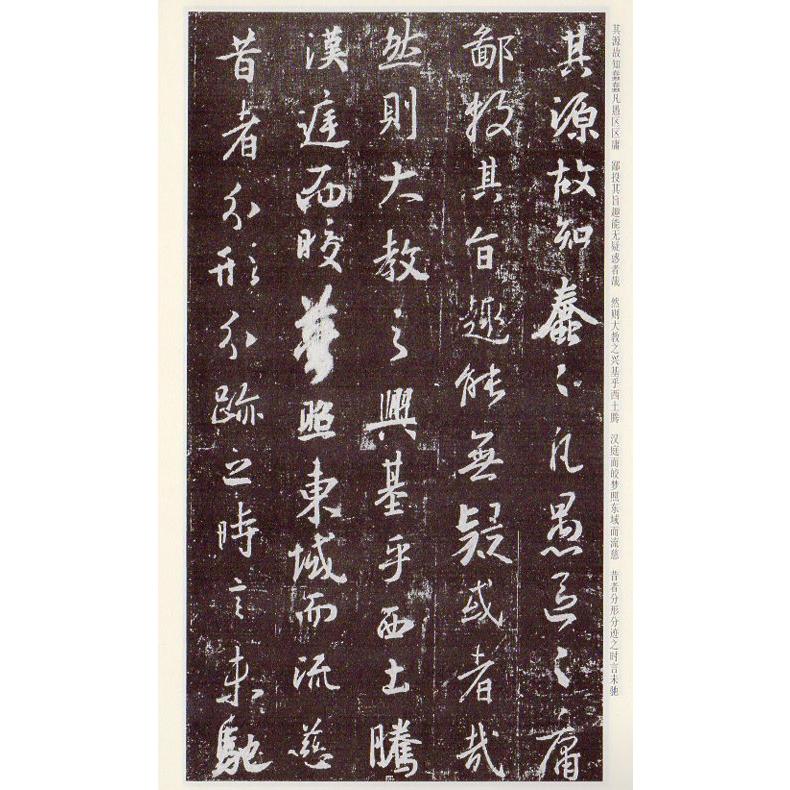 其源故知蠢蠢凡愚区区庸 鄙投其旨趣能无疑惑者哉 然则大教之兴基乎西土腾 汉庭而皎梦照东域而流慈 昔者分形分迹之时言未驰
其源故知蠢々凡愚區々庸
鄙投其旨趣能無疑或者哉
然則大教之興基乎西土騰
漢庭而皎夢照東域而流慈
昔者分形分跡之時言未馳